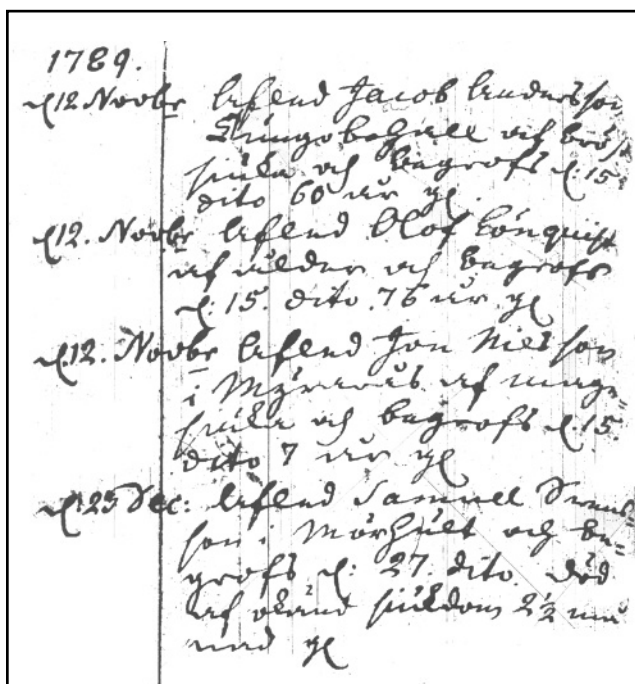 1789.
d. 12 Novbr Afled Jacob Andersson
och brö
siuka och begrofs d. 15
dito 60 år gl.
d. 12. Novbr Afled Olof Lönquist
af ålder och begrofs
d. 15. dito 76 år gl
d. 12. Novbr Afled Jon Nilsson
i af mag-
siuka och begrofs d. 15.
dito 7 år gl
d. 25 Dec: Afled Samuell Svens-
son i Mörhult och be-
grofs d: 27. dito död
af okänd siukdom 2½ må
nad gl